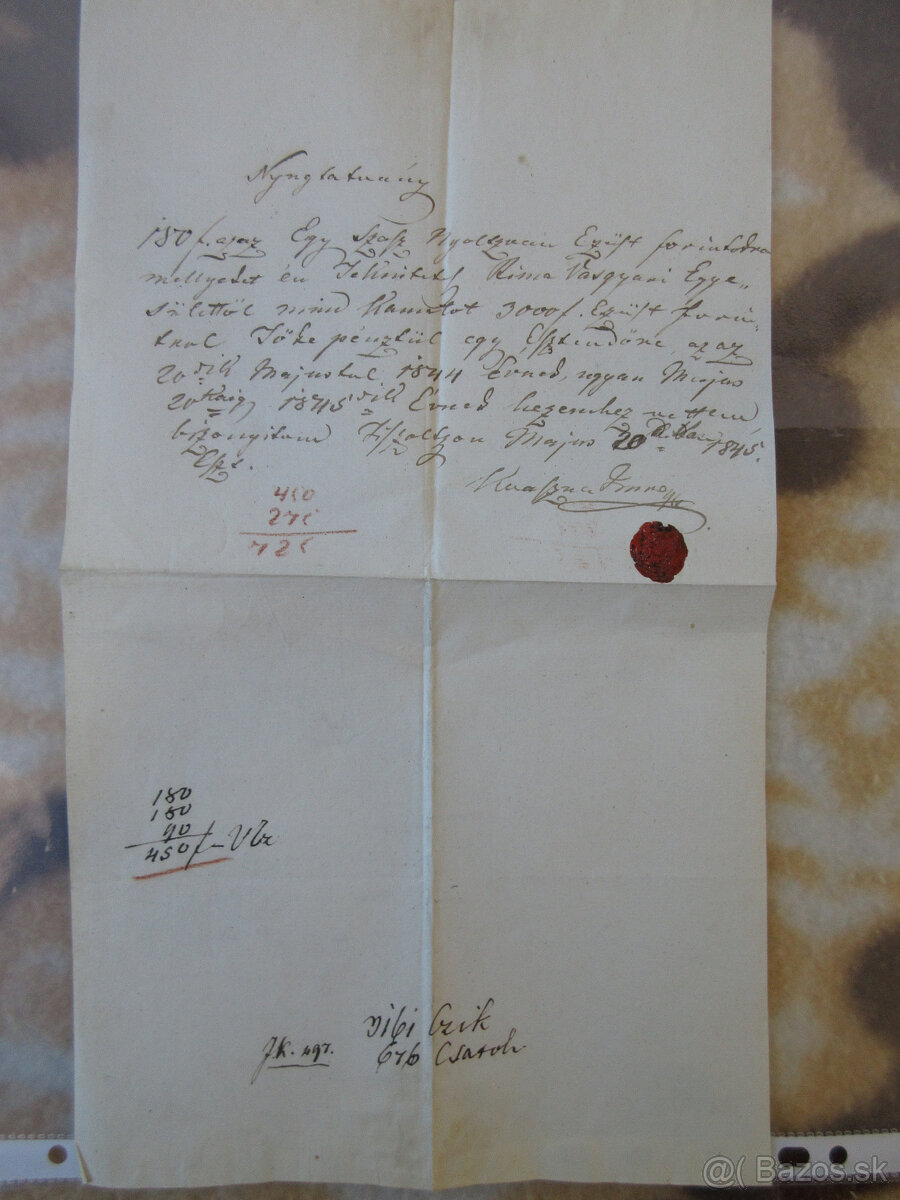 Nyugtatvány
180 f. azaz Egy Szász Nyoltzvan Ezüst forintokra
mellyeket én Tekintetes Rima Vasgyári Egye„
sülettöl mind Kamatot 3000 f. Ezüst forin„
trul Töke pénztül egy Esztendöre, azaz
20dik Majustul 1844 Évnek, ugyan Majus
20kaig 1845dik Évnek kezemhez vettem
bizonyitom Majus 20 1845.
Eszt.
Imre
450
275
725
180
180
90
450 f
Czik
J.K. 497. Csatolt
@( Bazos.sk